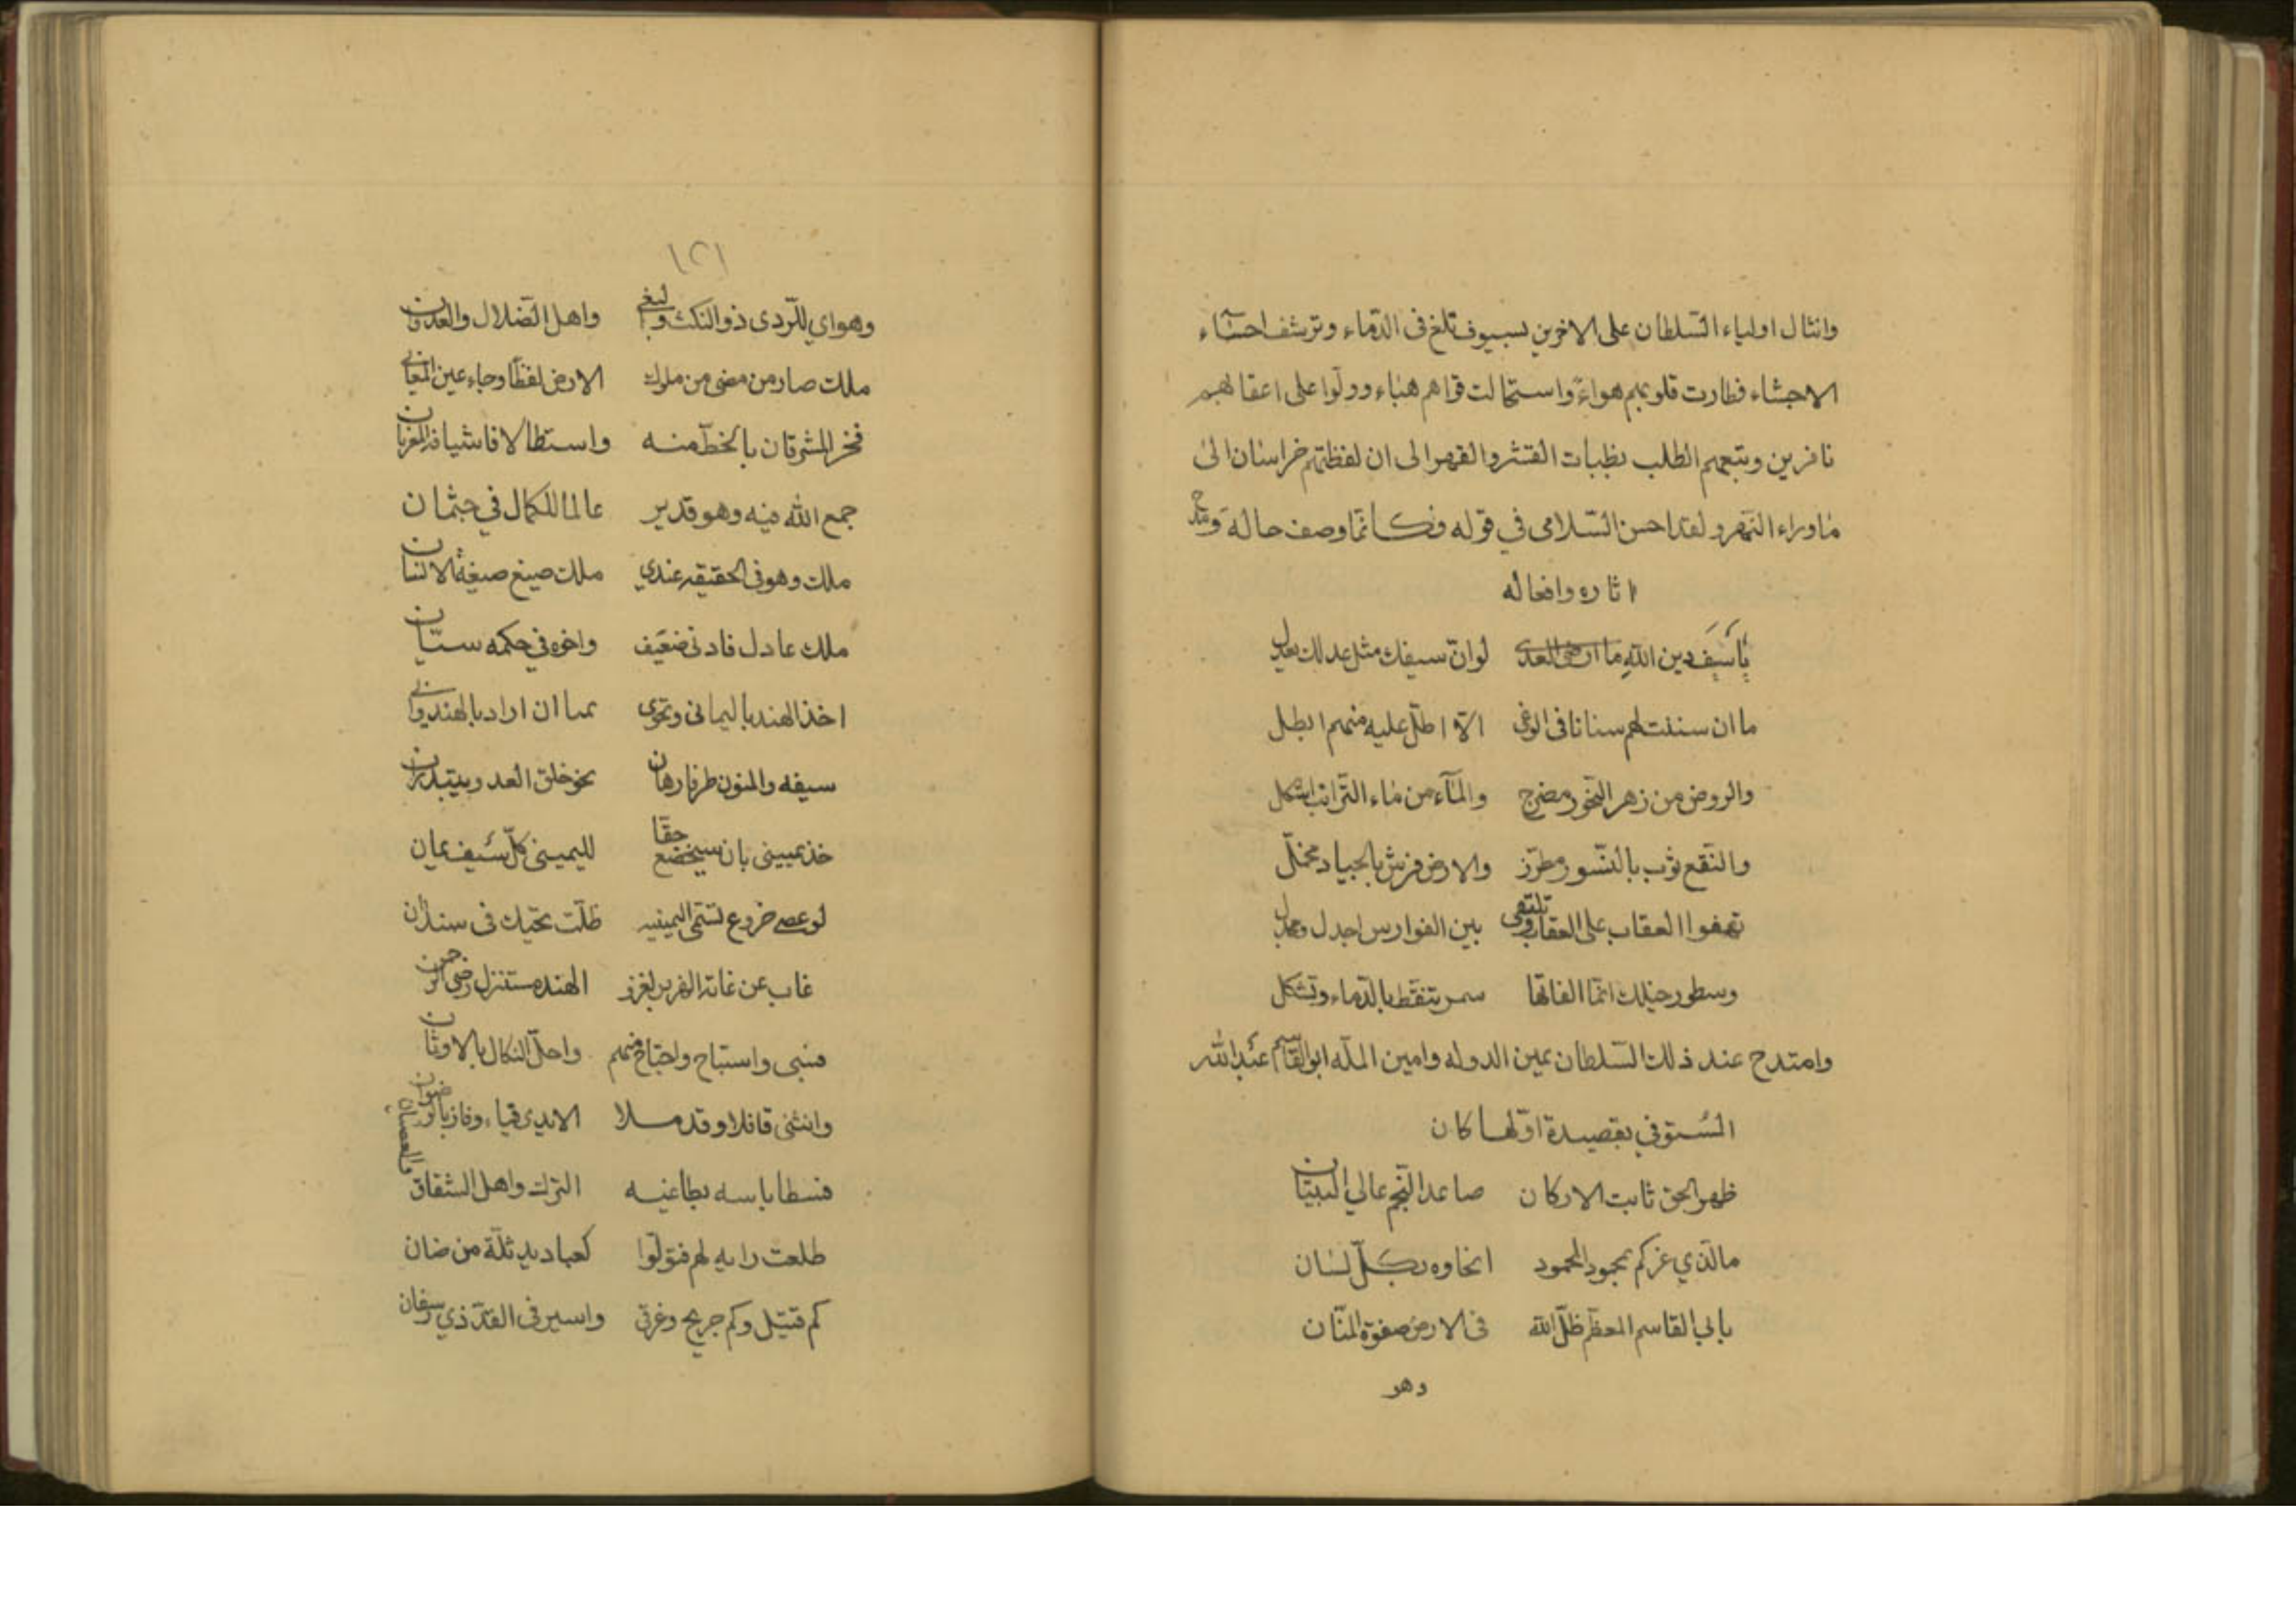 وانثال اولياء السّلطان على الاخرين بسيوف تلغ فى الدّماء وترشف احشآء
الاحشاء فطارت قلوبهم هواءً واستحالت قواهم هباء وولّوا على اعقابهم
نافرين وتبعهم الطلب بظبات القشر والقهر الى ان لفظتهم خراسان الى
ماوراء النّهر ولقد احسن السّلامى في قوله فكانّما وصف حاله
اثاره وافعاله
ياسيف دين الله ما ارضى العدى لوانّ سيفك مثل عدلك يعدل
ما ان سننت لهم سنانا فى الوغى الّا اطلّ عليه منهم ايطل
والروض من زهر النّحور مضرج والمآء من ماء التّرائب اشكل
والنّقع ثوب بالنّسور مطرّز والارض فرش بالجياد مخمّل
تهفوا العقاب على العقاب وتلتقى بين الفوارس اجدل ومجدل
وسطور خيلك انّما الفاتها سمر تنقّط بالدّماء وتشكل
وامتدح عند ذلك السّلطان يمين الدوله وامين الملّه ابو القاسم عبد الله
السُتوفي بقصيدة اوّلها كان
ظهر الحق ثابت الاركان صاعد النّجم عالي البنيان
مالذي غركم بمجود المحمود انخاوه بكلّ لسان
بابي القاسم المعظّم ظلّ الله فى الارض صفوة المنّان
وهو
١٢١
وهواي للرّدى ذو النكث والبغي واهل الضّلال والعدوان
ملك صار من مضى من ملوك الارض لفظًا وجاء عين المعاني
فخر المشرقان بالخطّ منه واستطالا فاشيا المغربان
جمع الله فيه وهو قدير عالما للكمال في جثمان
ملك وهو فى الحقيقه عندي ملك صيغ صيغة الانسان
ملك عادل فادنى ضعيف واخوه في حكمه سيّان
اخذ الهند باليمانى وتحوى بما ان اراد بالهندواني
سيفه والمنون طرفا رهان نحو خلق العدو يبتدران
خذ يميني بان سيخضع حقّا لليمينى كلّ سَيف يمان
لو عصى خروع تسمّى اليمينيه ظلّت تحيّك فى سندان
غاب عن غابة الغزو الهند مستنزل رضى الرحمن
فسبى واستباح واجتاح منهم واحلّ النكال بالاوثان
وانثنى قافلا وقد ملا الايدى فياء وفاز بالرضوان
فسطا باسه بطاغيه الترك واهل الشقاق والعصيان
طلعت رايه لهم فتولّوا كعباديد ثلّة من ضان
كم قتيل وكم جريح وغرقى واسير فى القدّ ذي رسفان